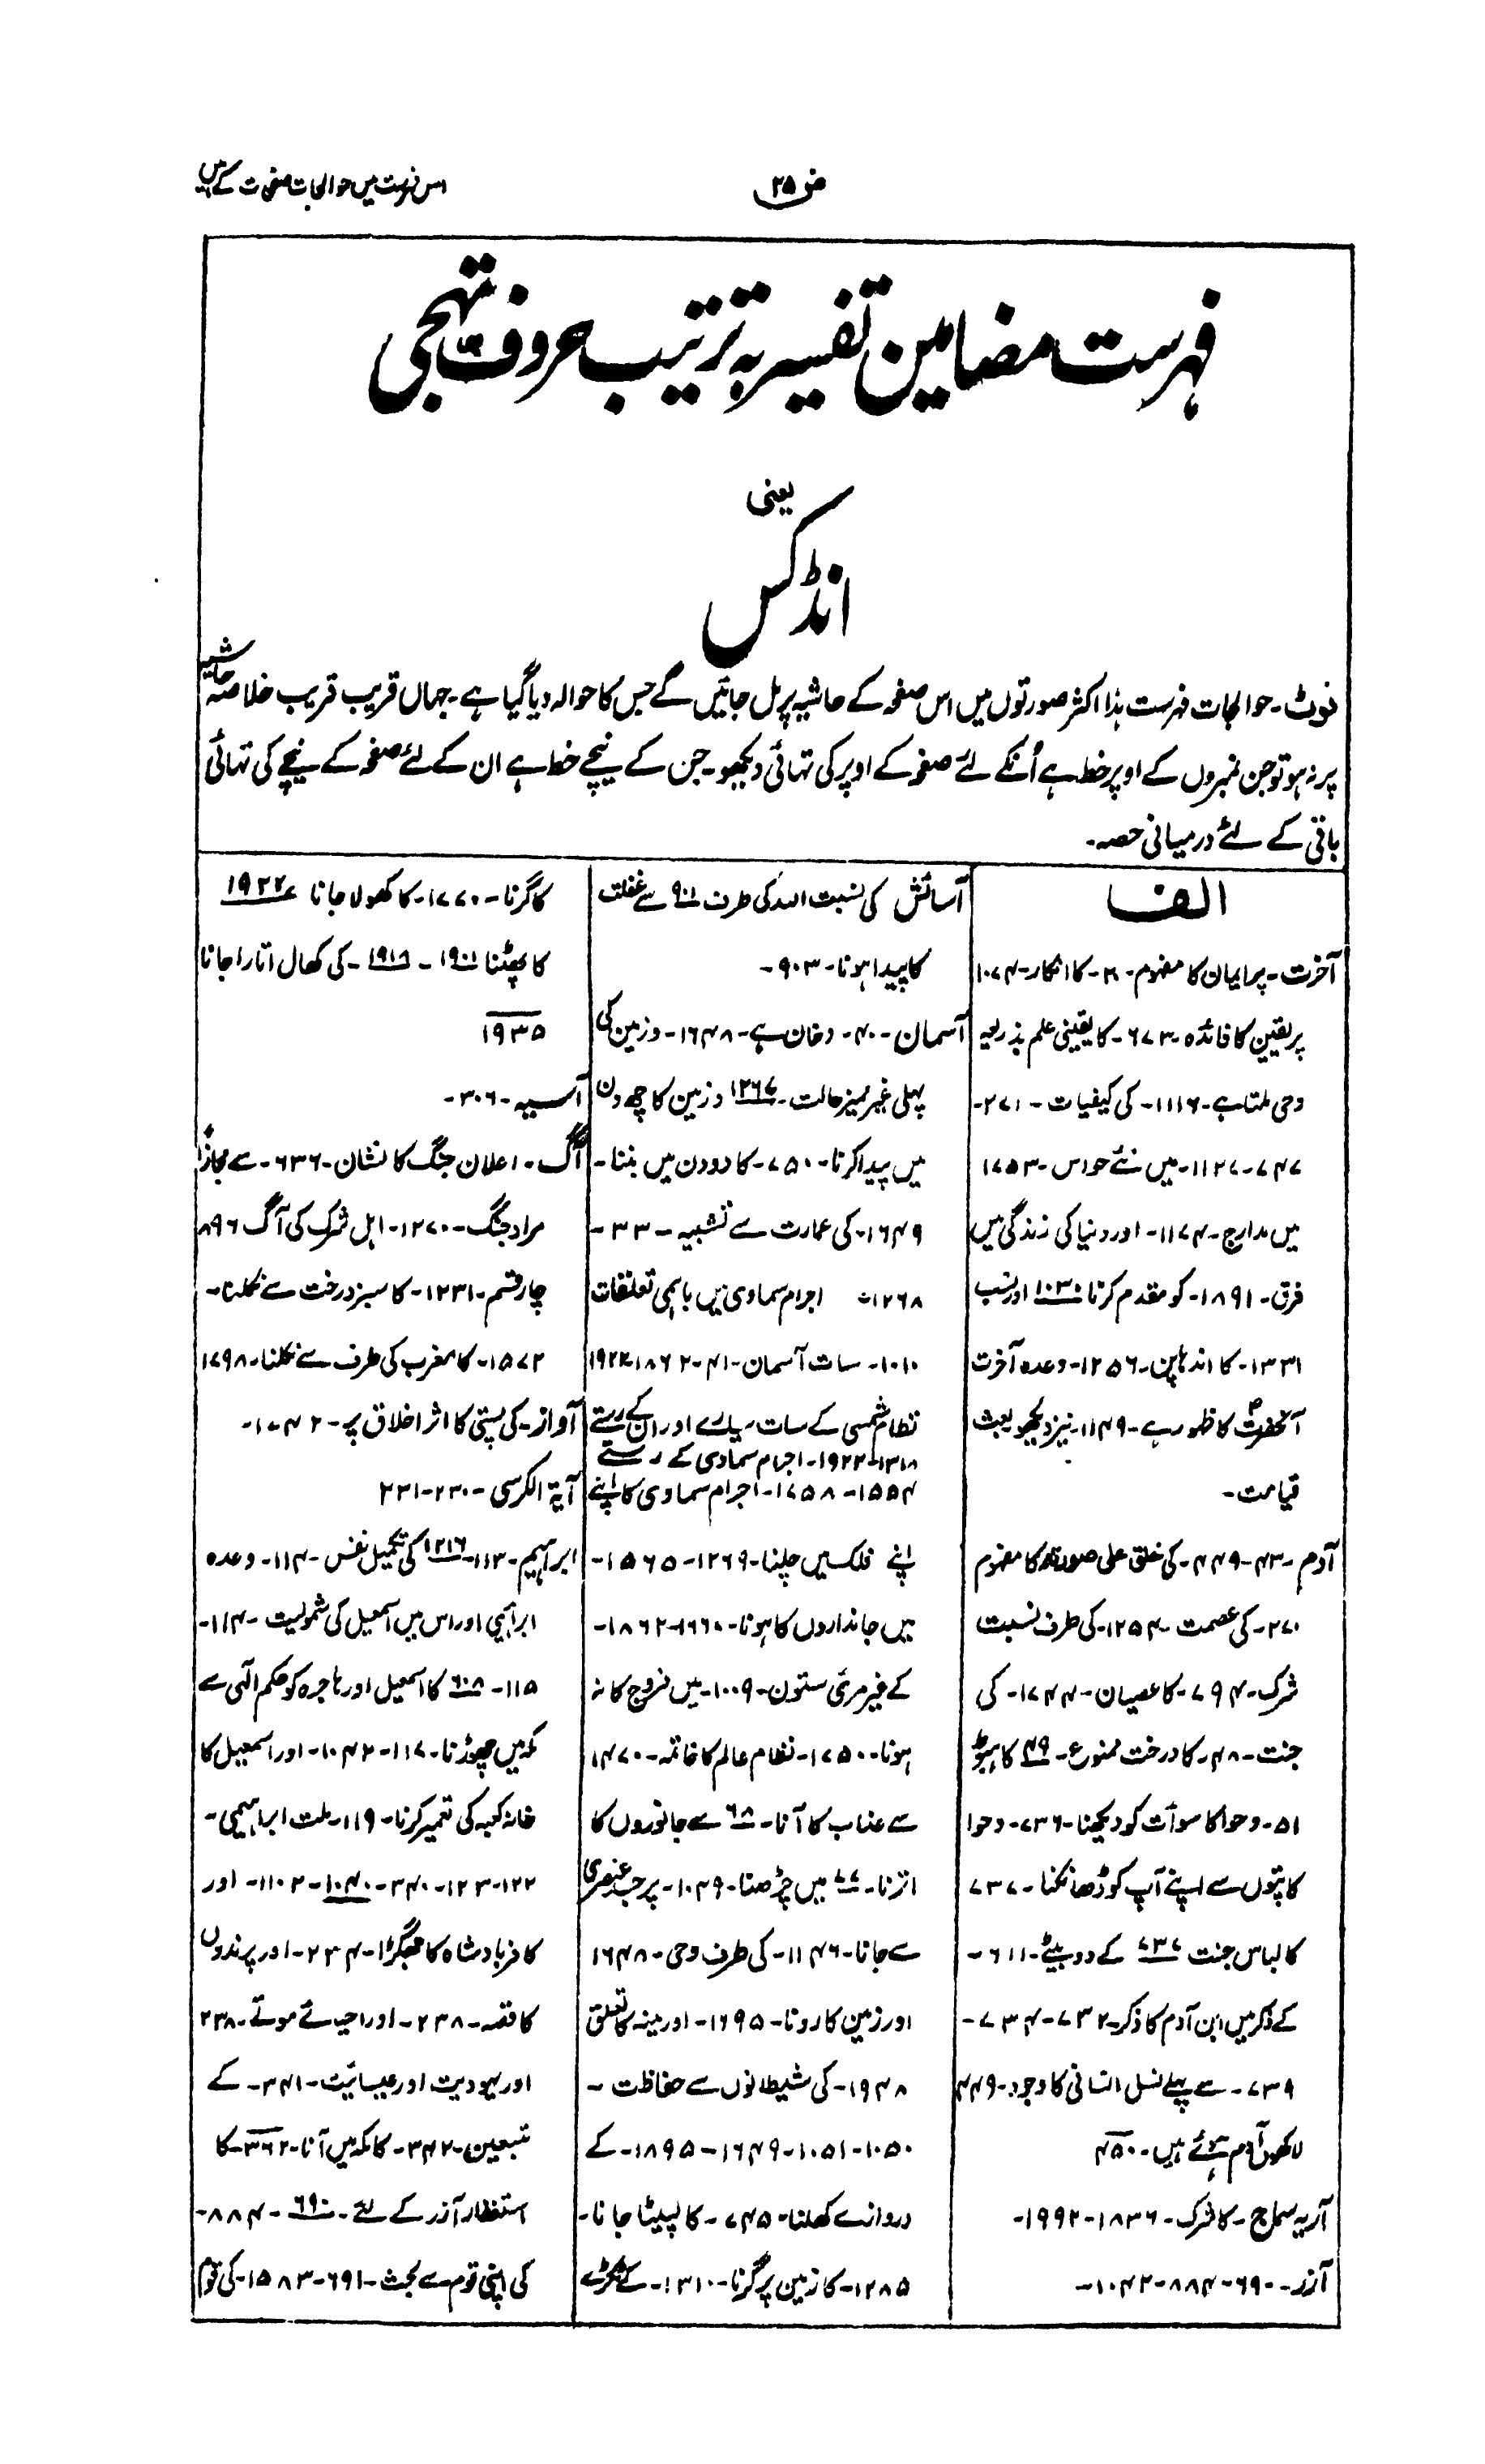 ض ۲۵
اس فہرست میں حوالجات صفحات کے ہیں
فہرست مضامین تفسیر بہ ترتیب حروف تہجی
یعنی
انڈکس
نوٹ۔ حوالجات فہرست ہذا اکثر صورتوں میں اس صفحہ کے حاشیہ پر مل جائیں گے جس کا حوالہ دیا گیا ہے۔ جہاں قریب قریب خلاصہ حاشیہ
پر نہ ہو تو جن نمبروں کے اوپر خط ہے اُنکے لئے صفحہ کے اوپر کی تہائی دیکھو۔ جن کے نیچے خط ہے ان کے لئے صفحہ کے نیچے کی تہائی
باقی کے لئے درمیانی حصہ۔
الف
آخرت۔ پر ایمان کا مفہوم۔ ۲۱۔ کا انکار۔ ۱۰۷۴
پر یقین کا فائدہ ۶۷۳۔ کا یقینی علم بذریعہ
وحی ملتا ہے۔ ۱۱۱۶۔ کی کیفیات۔ ۲۷۱۔
۷۴۷۔ ۱۱۲۷۔ میں نئے حواس۔ ۱۷۵۳
میں مدارج۔ ۱۱۷۴۔ اور دنیا کی زندگی میں
فرق۔ ۱۸۹۱۔ کو مقدم کرنا ۱۰۳۰ اور نسب
۱۳۳۱۔ کا اندھاپن۔ ۱۲۵۶۔ وعدہ آخرت
آنحضرتؐ کا ظہور ہے۔ ۱۱۴۹۔ نیز دیکھو بعث
قیامت۔
آدم۔ ۴۳۔ ۴۴۹۔ کی خلق علی صورتہ کا مفہوم
۲۷۰۔ کی عصمت۔ ۱۲۵۴۔ کی طرف نسبت
شرک۔ ۷۹۴۔ کا عصیان۔ ۱۷۴۴۔ کی
جنت۔ ۴۸۔ کا درخت ممنوع۔ ۴۹ کا ہبوط
۵۱۔ وحوا کا سوآت کو دیکھنا۔ ۷۳۶۔ وحوا
کا پتوں سے اپنے آپ کو ڈھانکنا۔ ۷۳۷
کا لباس جنت ۷۳۷ کے دو بیٹے۔ ۶۱۱۔
کے ذکر میں ابن آدم کا ذکر۔ ۷۳۲۔ ۷۳۴۔
۷۳۹۔ سے پہلے نسل انسانی کا وجود۔ ۴۴۹
لاکھوں آدم ہوئے ہیں۔ ۴۵۰
آریہ سماج۔ کا شرک۔ ۱۸۳۶۔ ۱۹۹۲۔
آزر۔ ۶۹۰۔ ۸۸۴۔ ۱۰۴۲۔
آسائش کی نسبت اللہ کی طرف ۹۰۱ سے غفلت
کا پیدا ہونا۔ ۹۰۳۔
آسمان۔ ۴۰۔ دخان ہے۔ ۱۶۴۸۔ و زمین کی
پہلی غیر ممیز حالت۔ ۱۲۶۷ و زمین کا چھ دن
میں پیدا کرنا۔ ۷۵۰۔ کا دو دن میں بننا۔
۱۶۴۹۔ کی عمارت سے تشبیہ۔ ۳۳۔
۱۲۶۸۔ اجرام سماوی میں باہمی تعلقات
۱۰۱۰۔ سات آسمان۔ ۴۱۔ ۱۸۶۲ ۱۹۲۲
نظام شمسی کے سات سیارے اور ان کے رستے
۱۳۱۸۔ ۱۹۲۲۔ اجرام سماوی کے رستے
۱۵۵۴۔ ۱۷۵۸۔ اجرام سماوی کا اپنے
اپنے فلک میں چلنا۔ ۱۲۶۹۔ ۱۵۶۵۔
میں جانداروں کا ہونا۔ ۱۶۶۰۔ ۱۸۶۲۔
کے غیر مرئی ستون۔ ۱۰۰۹۔ میں فروج کا نہ
ہونا۔ ۱۷۵۰۔ نظام عالم کا خاتمہ۔ ۱۴۷۰
سے عذاب کا آنا۔ ۶۸ سے جانوروں کا
اترنا۔ ۷۷ میں چڑھنا۔ ۱۰۴۹۔ پر جسد عنصری
سے جانا۔ ۱۱۴۶۔ کی طرف وحی۔ ۱۶۴۸
اور زمین کا رونا۔ ۱۶۹۵۔ اور مینہ کا تعلق
۱۹۴۸۔ کی شیطانوں سے حفاظت۔
۱۰۵۰۔ ۱۰۵۱۔ ۱۶۴۹۔ ۱۸۹۵۔ کے
دروازے کھلنا۔ ۷۴۵۔ کا لپیٹا جانا۔
۱۲۸۵۔ کا زمین پر گرنا۔ ۱۳۱۰۔ کے ٹکڑے
کا گرنا۔ ۱۷۷۰۔ کا کھولا جانا ۱۹۲۲
کا پھٹنا ۱۹۰۱۔ ۱۹۱۶۔ کی کھال اتارا جانا
۱۹۳۵
آسیہ۔ ۳۰۶۔
آگ۔ اعلان جنگ کا نشان۔ ۶۳۶۔ سے مجازًا
مراد جنگ۔ ۱۲۷۰۔ اہل شرک کی آگ ۸۹۶
چار قسم۔ ۱۲۳۱۔ کا سبز درخت سے نکلنا۔
۱۵۷۲۔ کا مغرب کی طرف سے نکلنا۔ ۱۷۹۸
آواز۔ کی پستی کا اثر اخلاق پر۔ ۱۷۴۲۔
آیۃ الکرسی۔ ۲۳۰۔ ۲۳۱
ابراہیم۔ ۱۱۳۔ ۱۲۱۶ کی تکمیل نفس۔ ۱۱۴۔ وعدہ
ابراہیمی اور اس میں اسمٰعیل کی شمولیت۔ ۱۱۴۔
۱۱۵۔ ۶۰۸ کا اسمعیل اور ہاجرہ کو حکم الٰہی سے
مکہ میں چھوڑنا۔ ۱۱۷۔ ۱۰۴۲۔ اور اسمعیل کا
خانہ کعبہ کی تعمیر کرنا۔ ۱۱۹۔ ملت ابراہیمی۔
۱۲۲۔ ۱۲۳۔ ۳۴۰۔ ۱۰۴۰۔ ۱۱۰۲۔ اور
کافر بادشاہ کا جھگڑا۔ ۲۳۴۔ اور پرندوں
کا قصہ۔ ۲۳۸۔ اور احیائے موتٰے۔ ۲۳۸
اور یہودیت اور عیسائیت۔ ۳۴۱۔ کے
متبعین۔ ۳۴۲۔ کا مکہ میں آنا۔ ۳۶۲۔ کا
استغفار آزر کے لئے۔ ۶۹۰۔ ۸۸۴۔
کی اپنی قوم سے بحث۔ ۶۹۱۔ ۱۵۸۳۔ کی قوم